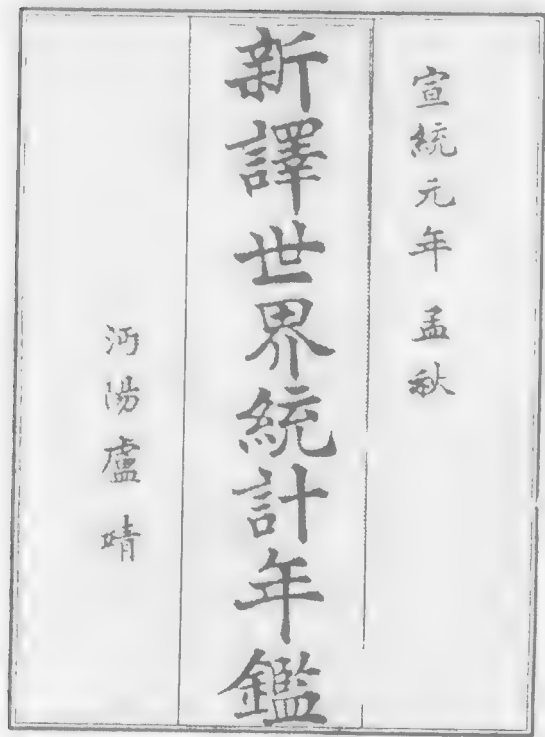 宣統元年孟秋
新譯世界統計年鑑
沔陽盧靖